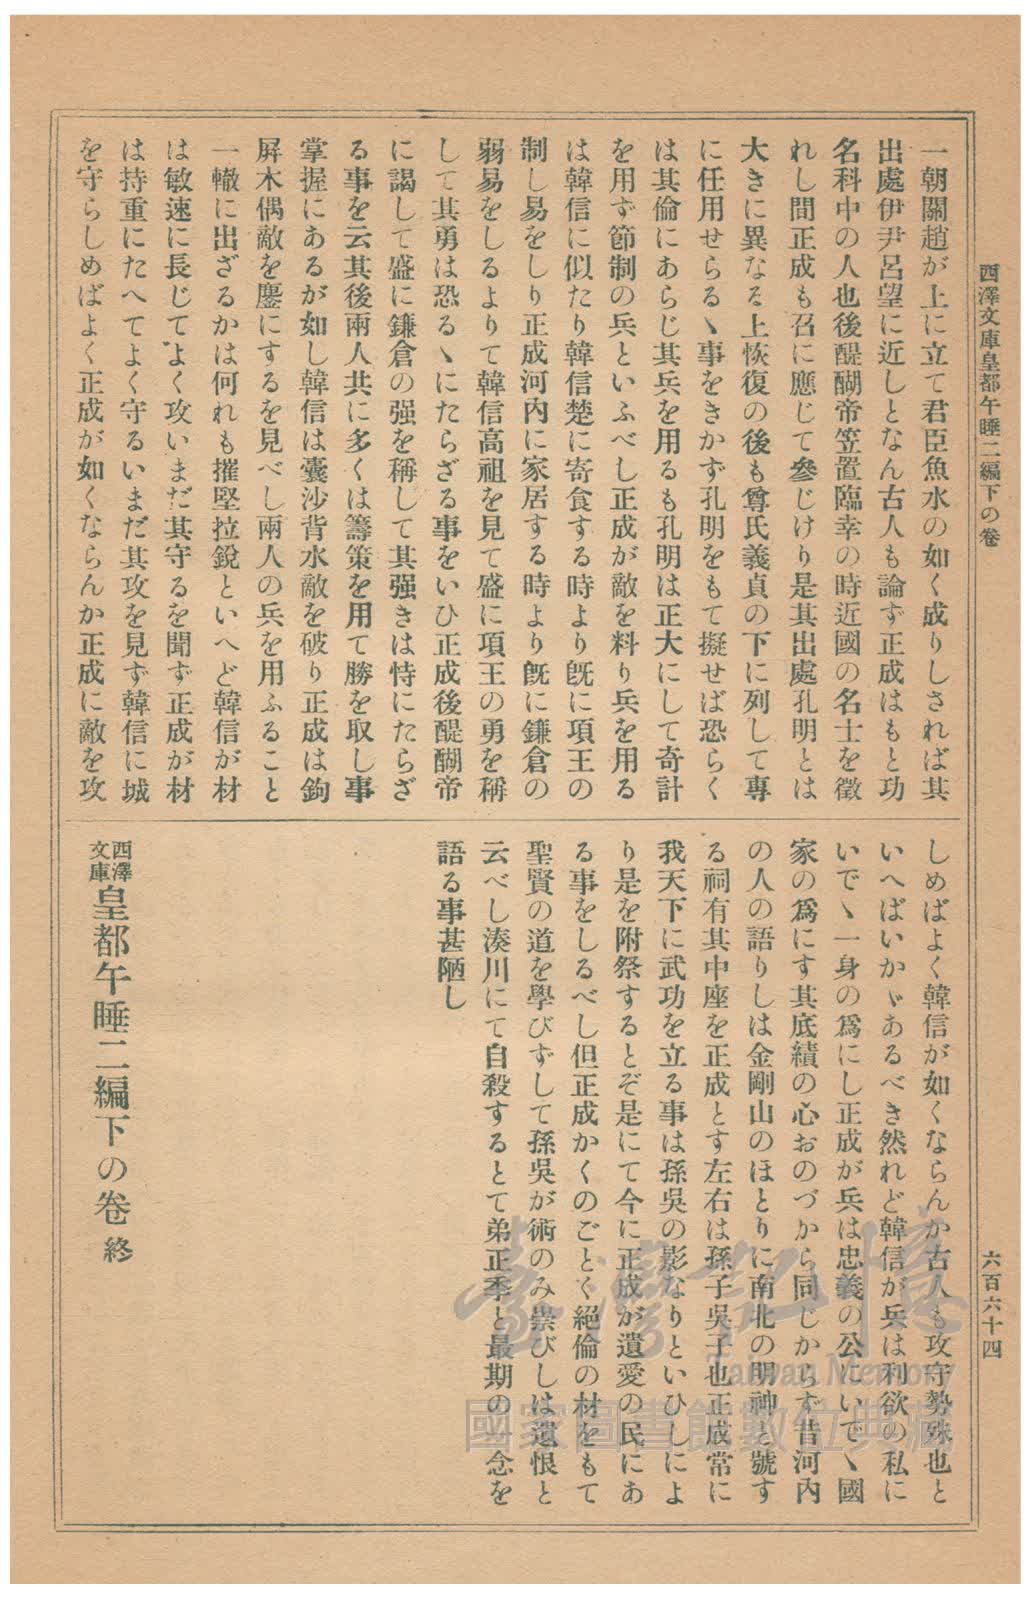 西澤文庫皇都午睡二編下の卷
六百六十四
一朝關趙が上に立て君臣魚水の如く成りしされば其
出處伊尹呂望に近しとなん古人も論ず正成はもと功
名科中の人也後醍醐帝笠置臨幸の時近國の名士を徵
れし間正成も召に應じて參じけり是其出處孔明とは
大きに異なる上恢復の後も尊氏義貞の下に列して專
に任用せらるゝ事をきかず孔明をもて擬せば恐らく
は其倫にあらじ其兵を用るも孔明は正大にして奇計
を用ず節制の兵といふべし正成が敵を料り兵を用る
は韓信に似たり韓信楚に寄食する時より旣に項王の
制し易をしり正成河內に家居する時より旣に鎌倉の
弱易をしるよりて韓信高祖を見て盛に項王の勇を稱
して其勇は恐るゝにたらざる事をいひ正成後醍醐帝
に謁して盛に鎌倉の强を稱して其强きは恃にたらざ
る事を云其後兩人共に多くは籌策を用て勝を取し事
掌握にあるが如し韓信は囊沙背水敵を破り正成は鉤
屛木偶敵を鏖にするを見べし兩人の兵を用ふること
一轍に出ざるかは何れも摧堅拉銳といへど韓信が材
は敏速に長じてよく攻いまだ其守るを聞ず正成が材
は持重にたへてよく守るいまだ其攻を見ず韓信に城
を守らしめばよく正成が如くならんか正成に敵を攻
しめばよく韓信が如くならんか古人も攻守勢殊也と
いへばいかゞあるべき然れど韓信が兵は利欲の私に
いでゝ一身の爲にし正成が兵は忠義の公にいでゝ國
家の爲にす其底績の心おのづから同じからず昔河內
の人の語りしは金剛山のほとりに南北の明神と號す
る祠有其中座を正成とす左右は孫子吳子也正成常に
我天下に武功を立る事は孫吳の影なりといひしによ
り是を附祭するとぞ是にて今に正成が遺愛の民にあ
る事をしるべし但正成かくのごとく絕倫の材をもて
聖賢の道を學びずして孫吳が術のみ崇びしは遺恨と
云べし湊川にて自殺するとて弟正季と最期の一念を
語る事甚陋し
西澤文庫皇都午睡二編下の卷終
臺灣記憶
Taiwan Memory
國家圖書館數位典藏